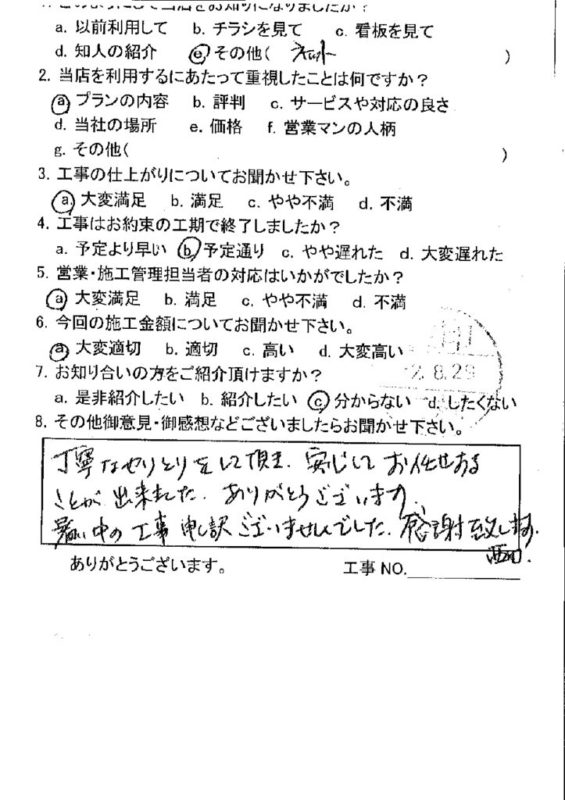 1. どのようにして当店をお知りになりましたか？
a. 以前利用して　b. チラシを見て　c. 看板を見て
d. 知人の紹介　e. その他(　ネット　)
2. 当店を利用するにあたって重視したことは何ですか？
a. プランの内容　b. 評判　c. サービスや対応の良さ
d. 当社の場所　e. 価格　f. 営業マンの人柄
g. その他(　)
3. 工事の仕上がりについてお聞かせ下さい。
a. 大変満足　b. 満足　c. やや不満　d. 不満
4. 工事はお約束の工期で終了しましたか？
a. 予定より早い　b. 予定通り　c. やや遅れた　d. 大変遅れた
5. 営業・施工管理担当者の対応はいかがでしたか？
a. 大変満足　b. 満足　c. やや不満　d. 不満
6. 今回の施工金額についてお聞かせ下さい。
a. 大変適切　b. 適切　c. 高い　d. 大変高い
2.8.29
7. お知り合いの方をご紹介頂けますか？
a. 是非紹介したい　b. 紹介したい　c. 分からない　d. したくない
8. その他御意見・御感想などございましたらお聞かせ下さい。
丁寧なやりとりをして頂き、安心してお任せする
ことが出来ました。ありがとうございます。
暑い中の工事申し訳ございませんでした。感謝致します。
ありがとうございます。　工事 NO.